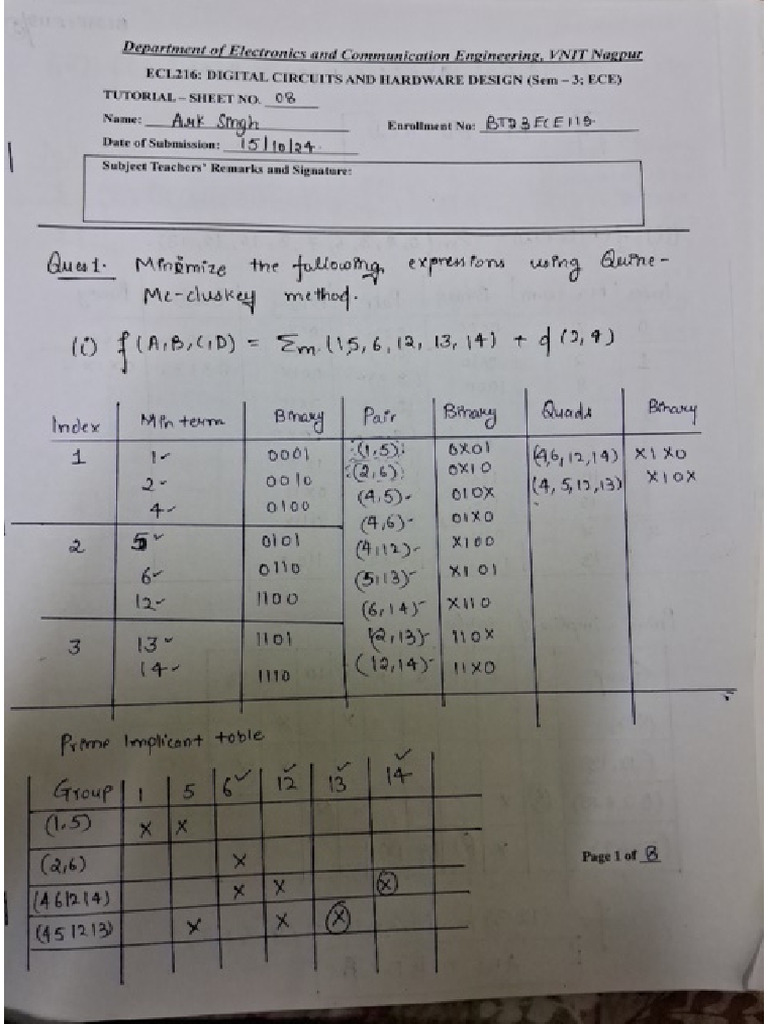 Department of Electronics and Communication Engineering, VNIT Nagpur
ECL216: DIGITAL CIRCUITS AND HARDWARE DESIGN (Sem – 3; ECE)
TUTORIAL – SHEET NO. 08
Name: Singh Enrollment No:
Date of Submission: 15/10/24
Subject Teachers' Remarks and Signature:
Ques 1. Minimize the following expressions using Quine-
Mc-cluskey method.
(i) f(A,B,C,D) = Σm (1,5, 6, 12, 13, 14) + d (2,4)
Index Min term Binary Pair Binary Quads Binary
1 1✓ 0001 (1,5) 0X01 (4,6,12,14) X1X0
2✓ 0010 (2,6) 0X10 (4,5,12,13) X10X
4✓ 0100 (4,5)✓ 010X
(4,6)✓ 01X0
2 5✓ 0101 (4,12)✓ X100
6✓ 0110 (5,13)✓ X101
12✓ 1100 (6,14)✓ X110
3 13✓ 1101 (12,13)✓ 110X
14✓ 1110 (12,14)✓ 11X0
Prime Implicant table
Group 1 5 6✓ 12✓ 13✓ 14✓
(1,5) X X
(2,6) X
(4 6 12 14) X X (X)
(4 5 12 13) X X (X)
Page 1 of 8